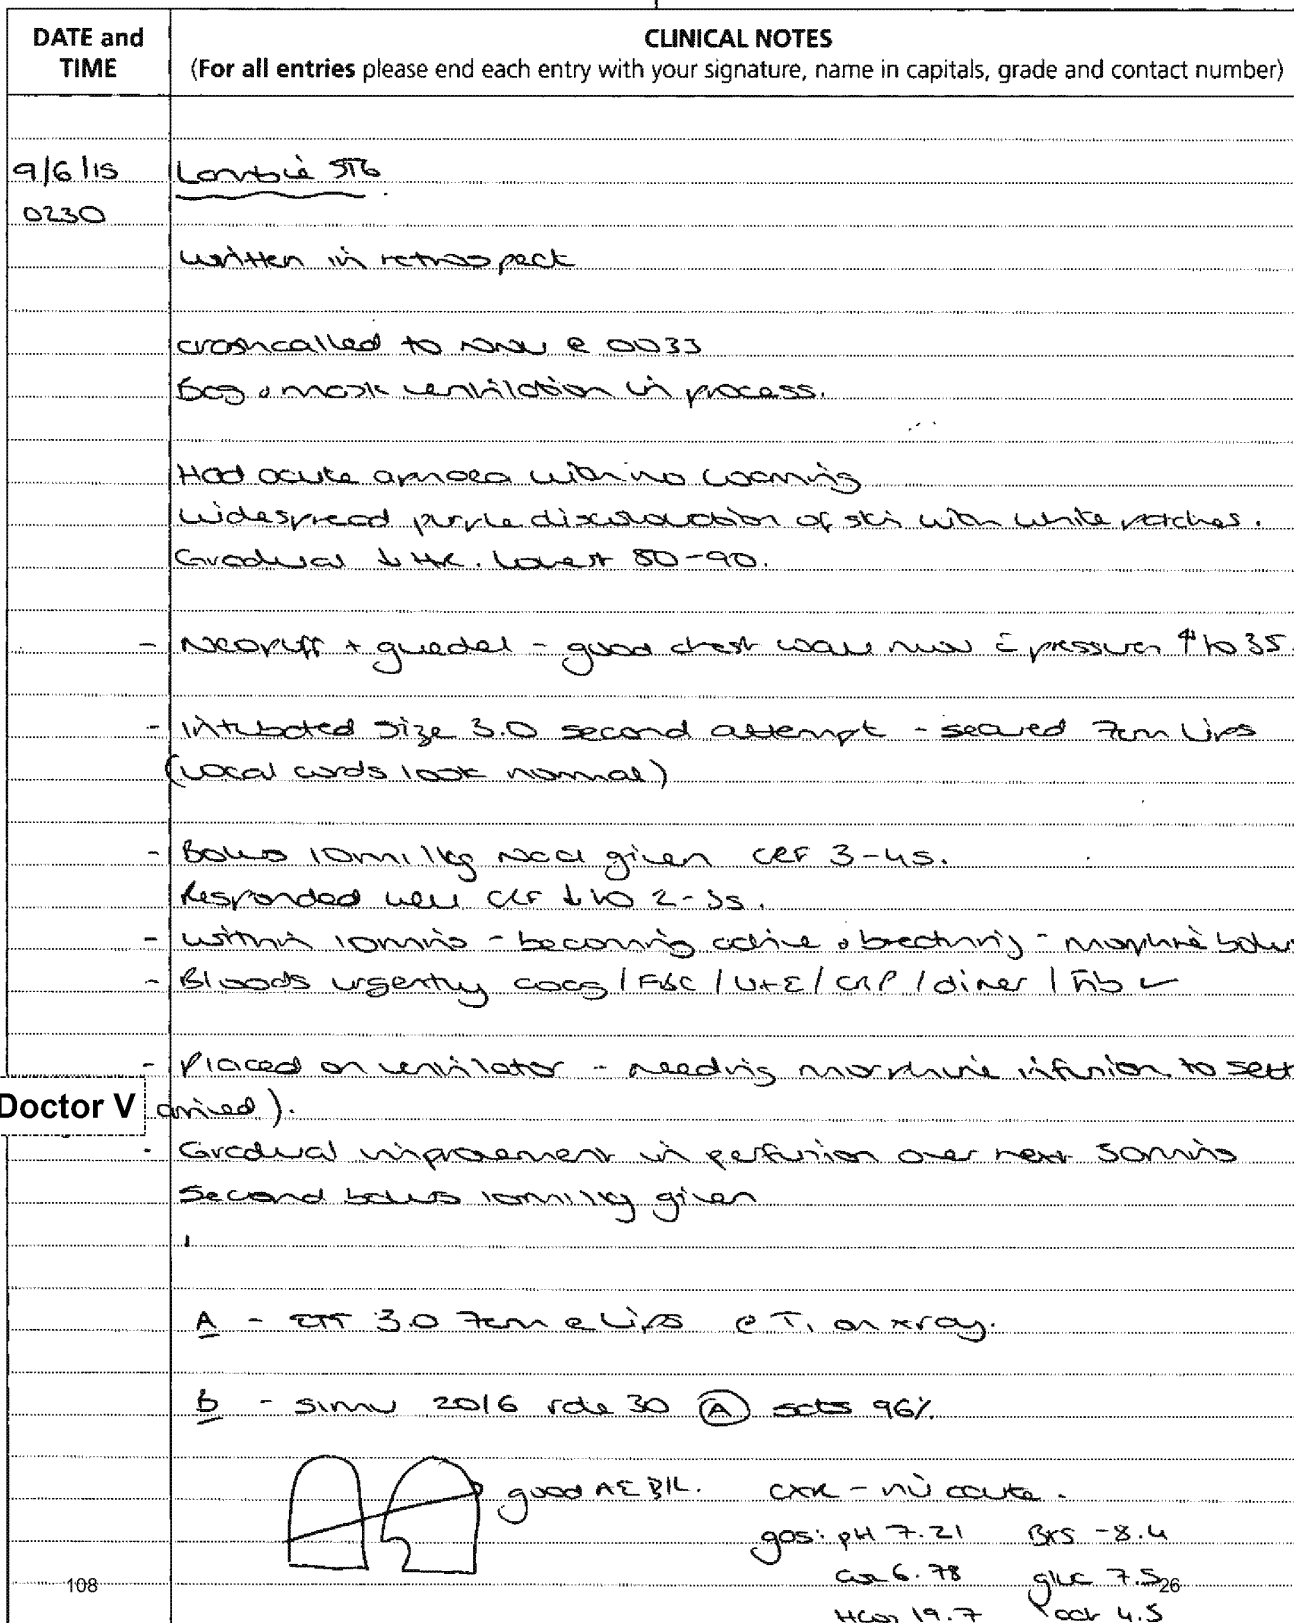 DATE and TIME
CLINICAL NOTES
(For all entries please end each entry with your signature, name in capitals, grade and contact number)
9/6/15 Lambie ST6
0230
written in retrospect
crashcalled to NNU @ 0033
Bag & mask ventilation in process.
Had acute apnoea with no warning
Widespread purple discolouration of skin with white patches.
Gradual ↓ HR. Lowest 80-90.
- Neopuff + guedel - good chest wall mov c̄ pressures ↑ to 35.
- Intubated size 3.0 second attempt - secured 7cm lips
(vocal cords look normal)
- Bolus 10ml/kg NaCl given CRT 3-4s.
Responded well CRT ↓ to 2-3s.
- within 10mins - becoming active & breathing - morphine bolus
- Bloods urgently coag / FBC / U+E / CRP / dimer / Fib ✓
- Placed on ventilator - needing morphine infusion to sett
Doctor V arrived).
- Gradual improvement in perfusion over next 30mins
Second bolus 10ml/kg given
A - ETT 3.0 7cm @ lips @ T1 on xray.
B - SIMV 20/6 rate 30 (A) sats 96%
good AE B/L. CXR - nil acute.
gas: pH 7.21 BXS -8.4
CO2 6.78 gluc 7.5
108 26
HCO3 19.7 lact 4.5